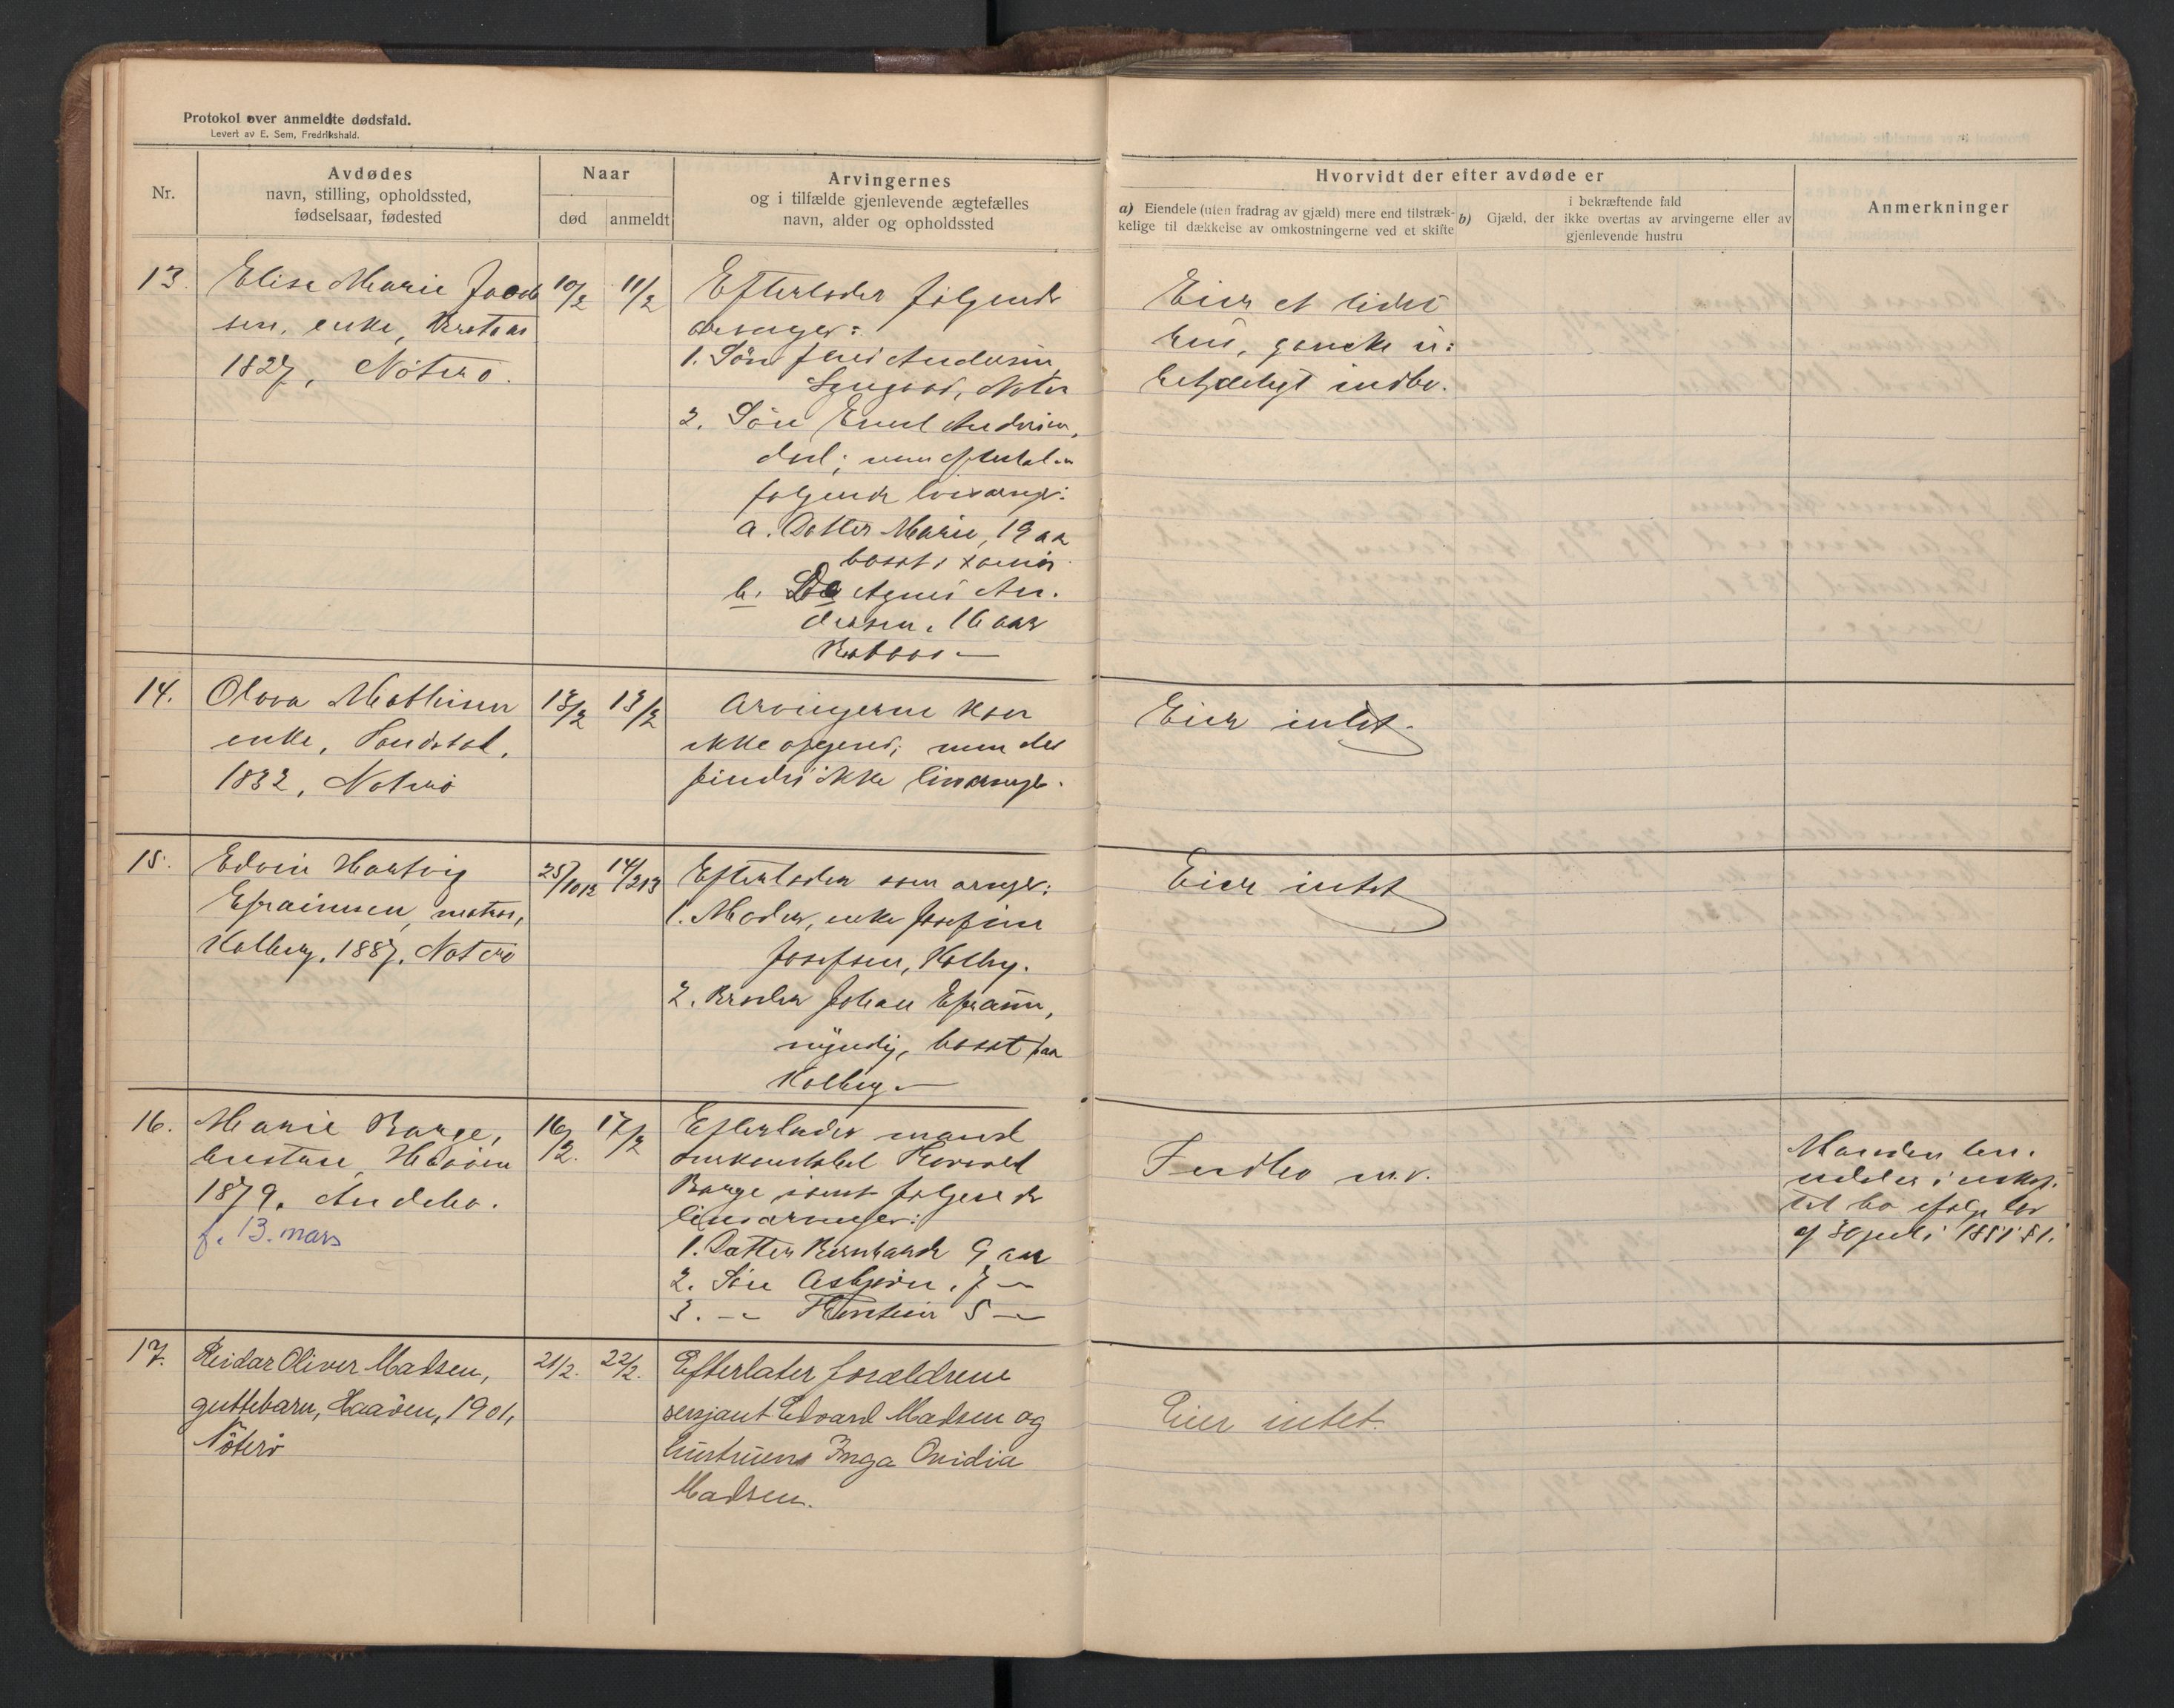 Protokol over anmeldte dødsfald.
Levert av E. Sem, Fredrikshald.
Nr.
Avdødes
navn, stilling, opholdssted,
fødselsaar, fødested
Naar
død
anmeldt
Arvingernes
og i tilfælde gjenlevende ægtefælles
navn, alder og opholdssted
Hvorvidt der efter avdøde er
a) Eiendele (uten fradrag av gjæld) mere end tilstræk-
kelige til dækkelse av omkostningerne ved et skifte
b) Gjæld, der
i bekræftende fald
ikke overtas av arvingerne eller av
gjenlevende hustru
Anmerkninger
13.
Elise Marie Jacob
sen, enke,
1827, Nøterø.
10/2
11/2
Efterlader følgende
arvinger:
1. Søn Jens Andersen
2. Søn Emil Andersen,
død; men
følgende livsarvg:
a. Datter Marie, 19 aa
bosat i
b. Do Agnes An.
dersen, 16 aar
Eier et lidet
hus, ganske u:
betydeligt indbo.
14.
Olava Mathisen
enke,
1832, Nøterø
13/2
13/2
Arvingerne kan
ikke opgives; men det
findes ikke livsarvge.
Eier intet.
15.
Edvin Hartvig
Efraimsen, matros,
Kolberg, 1887, Nøterø
25/10 12
14/2 13
Efterlader som arvgr:
1. Moder, enke Josefine
Josefsen, Kolbg.
2. Broder Johan Efraim,
myndig, bosat paa
Kolberg.
Eier intet
16.
Marie Borge,
hustru, Haaøen
1879, Andebu.
f. 13. mars
16/2.
17/2
Efterlader mand
Borge samt følgende
livsarvinger:
1. Datter Bernharde 9 aar
2. Søn Asbjørn, 7 —
3. — 5 —
Indbo m.v.
Manden hen.
sidder i uskif.
tet bo ifølge lov
af 30 juli 1851 § 1.
17.
Reidar Oliver Madsen,
guttebarn, Haaøen, 1901,
Nøterø
21/2.
22/2.
Efterlater forældrene
sersjant Edvard Madsen og
hustruens Inga Ovidia
Madsen.
Eier intet.